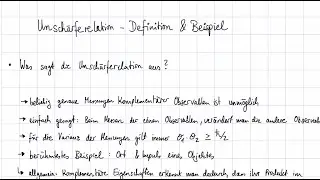 Unschärferelation - Definition & Beispiel
• Was sagt die Unschärferelation aus?
→ beliebig genaue Messungen komplementärer Observablen ist unmöglich
→ einfach gesagt: Beim Messen der einen Observablen, verändert man die andere Observable
→ für die Varianz der Messungen gilt immer σ₁·σ₂ ≥ ħ/2
→ berühmtestes Beispiel: Ort & Impuls eines Objektes
→ allgemein: Komplementäre Eigenschaften erkennt man dadurch, dass ihr Produkt im